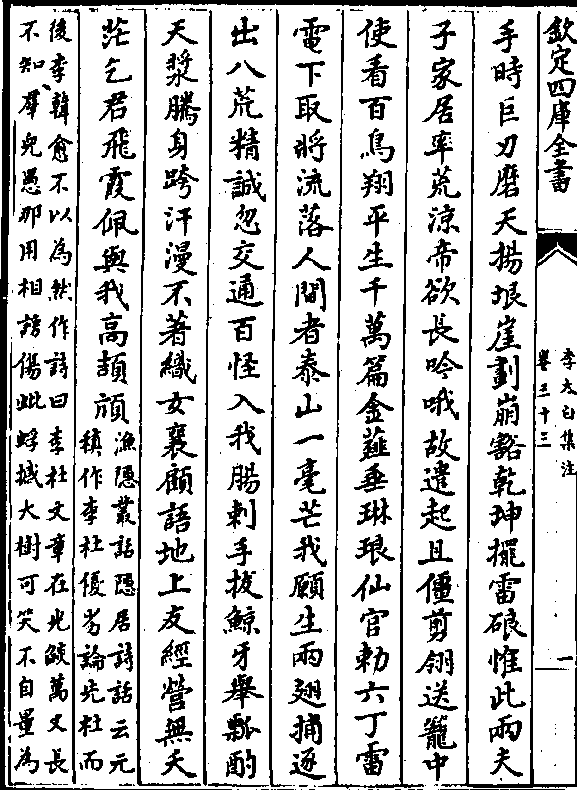 欽定四庫全書
李太白集注
卷三十三
一
手時巨刃磨天揚垠崖劃崩豁乾坤擺雷硠惟此兩夫
子家居率荒涼帝欲長吟哦故遣起且僵剪翎送籠中
使看百鳥翔平生千萬篇金薤垂琳琅仙官勅六丁雷
電下取將流落人間者泰山一毫芒我願生兩翅捕逐
出八荒精誠忽交通百怪入我腸刺手拔鯨牙舉瓢酌
天漿騰身跨汗漫不著織女襄顧語地上友經營無天
茫乞君飛霞佩與我高頡頏
漁隱叢話隱居詩話云元
稹作李杜優劣論先杜而
後李韓愈不以為然作詩曰李杜文章在光燄萬丈長
不知羣兒愚那用相謗傷蚍蜉撼大樹可笑不自量為